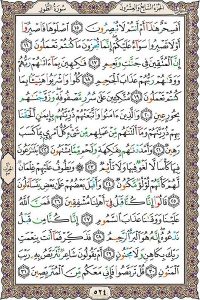 الجزء السابع والعشرون سورة الطور
أَفَسِحْرٌ هَٰذَآ أَمْ أَنتُمْ لَا تُبْصِرُونَ ١٥ ٱصْلَوْهَا فَٱصْبِرُوٓا۟
أَوْ لَا تَصْبِرُوا۟ سَوَآءٌ عَلَيْكُمْ إِنَّمَا تُجْزَوْنَ مَا كُنتُمْ تَعْمَلُونَ ١٦
إِنَّ ٱلْمُتَّقِينَ فِى جَنَّٰتٍ وَنَعِيمٍ ١٧ فَٰكِهِينَ بِمَآ ءَاتَىٰهُمْ رَبُّهُمْ
وَوَقَىٰهُمْ رَبُّهُمْ عَذَابَ ٱلْجَحِيمِ ١٨ كُلُوا۟ وَٱشْرَبُوا۟ هَنِيٓـًٔۢا بِمَا
كُنتُمْ تَعْمَلُونَ ١٩ مُتَّكِـِٔينَ عَلَىٰ سُرُرٍ مَّصْفُوفَةٍ وَزَوَّجْنَٰهُم
بِحُورٍ عِينٍ ٢٠ وَٱلَّذِينَ ءَامَنُوا۟ وَٱتَّبَعَتْهُمْ ذُرِّيَّتُهُم بِإِيمَٰنٍ أَلْحَقْنَا
بِهِمْ ذُرِّيَّتَهُمْ وَمَآ أَلَتْنَٰهُم مِّنْ عَمَلِهِم مِّن شَىْءٍ كُلُّ ٱمْرِئٍۭ بِمَا كَسَبَ
رَهِينٌ ٢١ وَأَمْدَدْنَٰهُم بِفَٰكِهَةٍ وَلَحْمٍ مِّمَّا يَشْتَهُونَ ٢٢ يَتَنَٰزَعُونَ
فِيهَا كَأْسًا لَّا لَغْوٌ فِيهَا وَلَا تَأْثِيمٌ ٢٣ وَيَطُوفُ عَلَيْهِمْ غِلْمَانٌ
لَّهُمْ كَأَنَّهُمْ لُؤْلُؤٌ مَّكْنُونٌ ٢٤ وَأَقْبَلَ بَعْضُهُمْ عَلَىٰ بَعْضٍ يَتَسَآءَلُونَ
٢٥ قَالُوٓا۟ إِنَّا كُنَّا قَبْلُ فِىٓ أَهْلِنَا مُشْفِقِينَ ٢٦ فَمَنَّ ٱللَّهُ
عَلَيْنَا وَوَقَىٰنَا عَذَابَ ٱلسَّمُومِ ٢٧ إِنَّا كُنَّا مِن قَبْلُ
نَدْعُوهُ إِنَّهُۥ هُوَ ٱلْبَرُّ ٱلرَّحِيمُ ٢٨ فَذَكِّرْ فَمَآ أَنتَ بِنِعْمَتِ
رَبِّكَ بِكَاهِنٍ وَلَا مَجْنُونٍ ٢٩ أَمْ يَقُولُونَ شَاعِرٌ نَّتَرَبَّصُ بِهِۦ رَيْبَ
ٱلْمَنُونِ ٣٠ قُلْ تَرَبَّصُوا۟ فَإِنِّى مَعَكُم مِّنَ ٱلْمُتَرَبِّصِينَ ٣١
٥٢٤